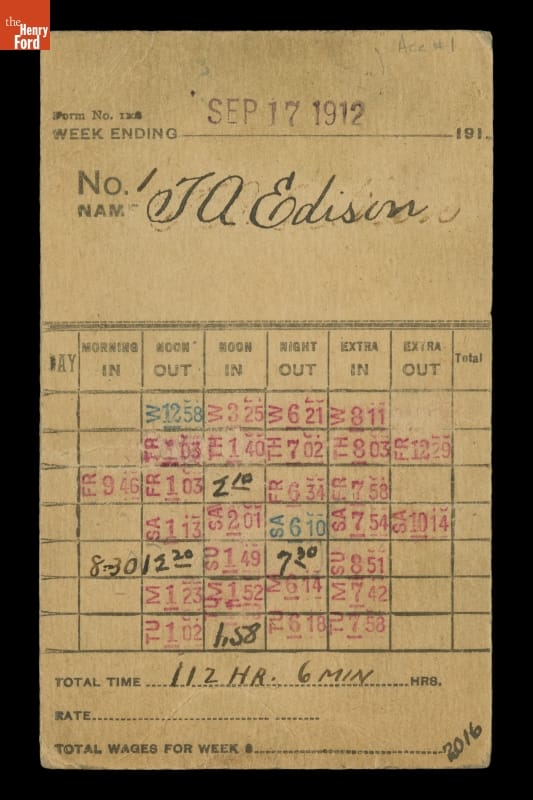 the
Henry
Ford
Acc #1
Form No.
SEP 17 1912
WEEK ENDING 191
No. 1
NAME T A Edison
DAY MORNING IN NOON OUT NOON IN NIGHT OUT EXTRA IN EXTRA OUT Total
W 12 58 W 3 25 W 6 21 W 8 11
FR 1 03 TH 1 40 TH 7 02 TH 8 03 FR 12 29
FR 9 46 FR 1 03 2 10 FR 6 34 FR 7 58
SA 1 13 SA 2 01 SA 6 10 SA 7 54 SA 10 14
8-30 12 20 SU 1 49 7 30 SU 8 51
M 1 23 M 1 52 M 6 14 M 7 42
TU 1 02 1.58 TU 6 18 TU 7 58
TOTAL TIME 112 HR. 6 MIN HRS.
RATE
TOTAL WAGES FOR WEEK $
2016